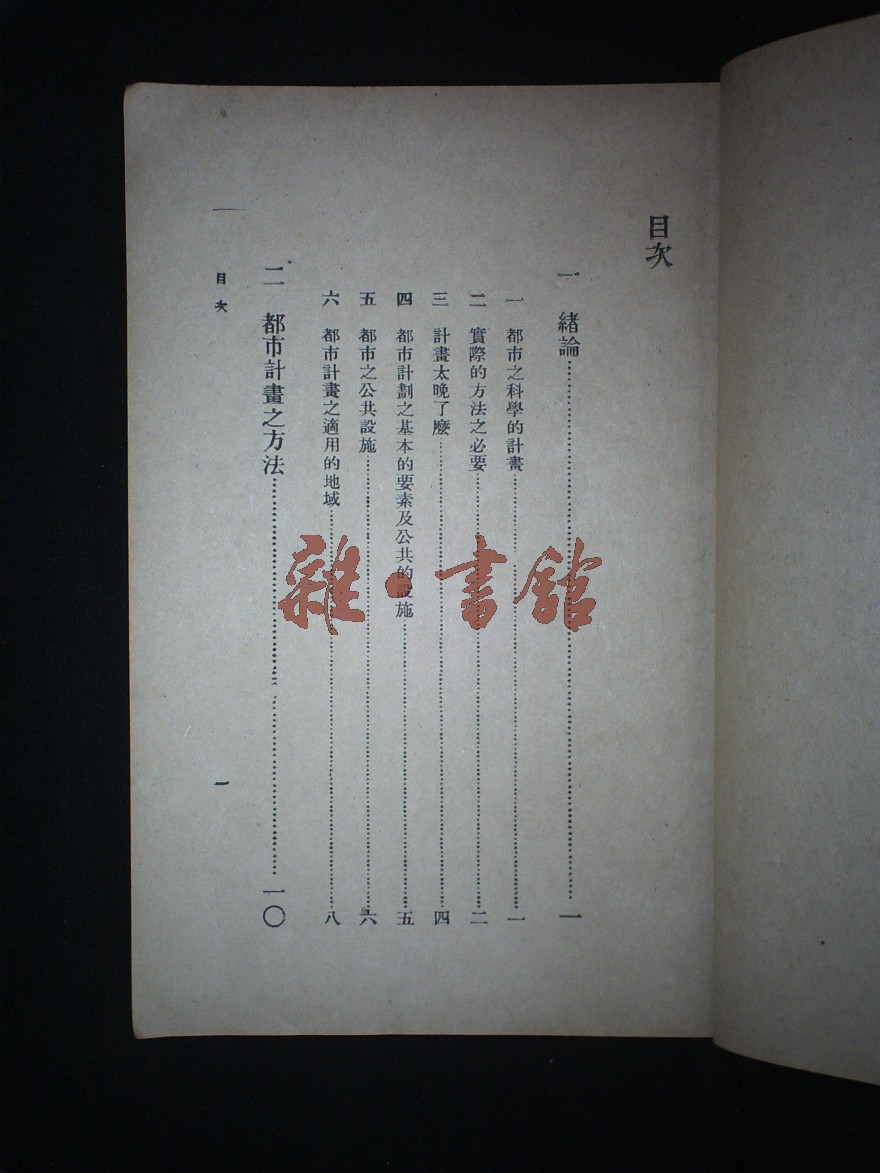 目次
一 緒論…………一
一 都市之科學的計畫…………一
二 實際的方法之必要…………二
三 計畫太晚了麽…………四
四 都市計劃之基本的要素及公共的設施…………五
五 都市之公共設施…………六
六 都市計畫之適用的地域…………八
二 都市計畫之方法…………一〇
目次
一
雜·書館